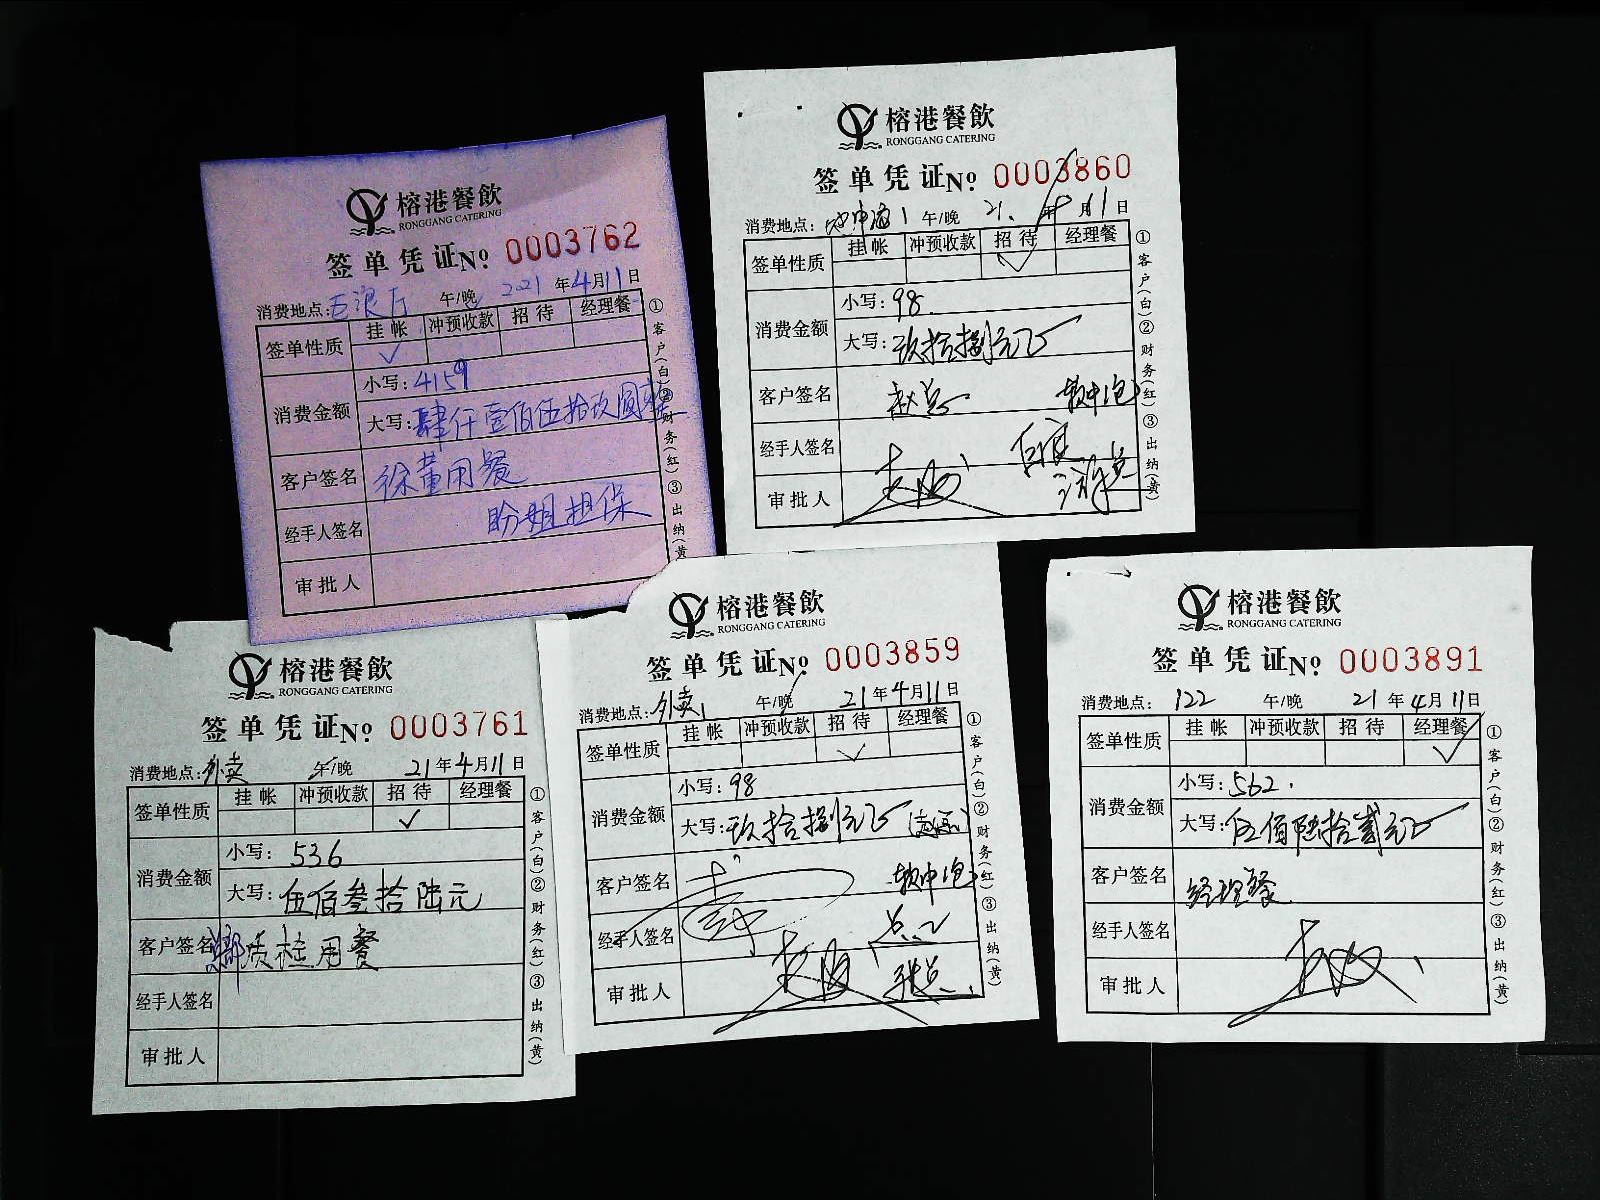 榕港餐飲
RONGGANG CATERING
签单凭证 № 0003762
消费地点: 巨浪厅 午/晚 2021 年 4 月 11 日
签单性质 挂帐 冲预收款 招待 经理餐
✓
消费金额 小写: 4159
大写: 肆仟壹佰伍拾玖圆整
客户签名 徐董用餐
经手人签名 盼姐担保
审批人
①客户(白)②财务(红)③出纳(黄)
榕港餐飲
RONGGANG CATERING
签单凭证 № 0003860
消费地点: 午/晚 21. 年 月 11 日
签单性质 挂帐 冲预收款 招待 经理餐
✓
消费金额 小写: 98.
大写: 玖拾捌元正
客户签名 赵总 软中1包
经手人签名
审批人
①客户(白)②财务(红)③出纳(黄)
榕港餐飲
RONGGANG CATERING
签单凭证 № 0003761
消费地点: 外卖 午/晚 21 年 4 月 11 日
签单性质 挂帐 冲预收款 招待 经理餐
✓
消费金额 小写: 536
大写: 伍佰叁拾陆元
客户签名 质检用餐
经手人签名
审批人
①客户(白)②财务(红)③出纳(黄)
榕港餐飲
RONGGANG CATERING
签单凭证 № 0003859
消费地点: 外卖 午/晚 21 年 4 月 11 日
签单性质 挂帐 冲预收款 招待 经理餐
✓
消费金额 小写: 98
大写: 玖拾捌元正
客户签名 软中1包
经手人签名
审批人 张总
①客户(白)②财务(红)③出纳(黄)
榕港餐飲
RONGGANG CATERING
签单凭证 № 0003891
消费地点: 122 午/晚 21 年 4 月 11 日
签单性质 挂帐 冲预收款 招待 经理餐
✓
消费金额 小写: 562.
大写: 伍佰陆拾贰元正
客户签名 经理餐
经手人签名
审批人
①客户(白)②财务(红)③出纳(黄)